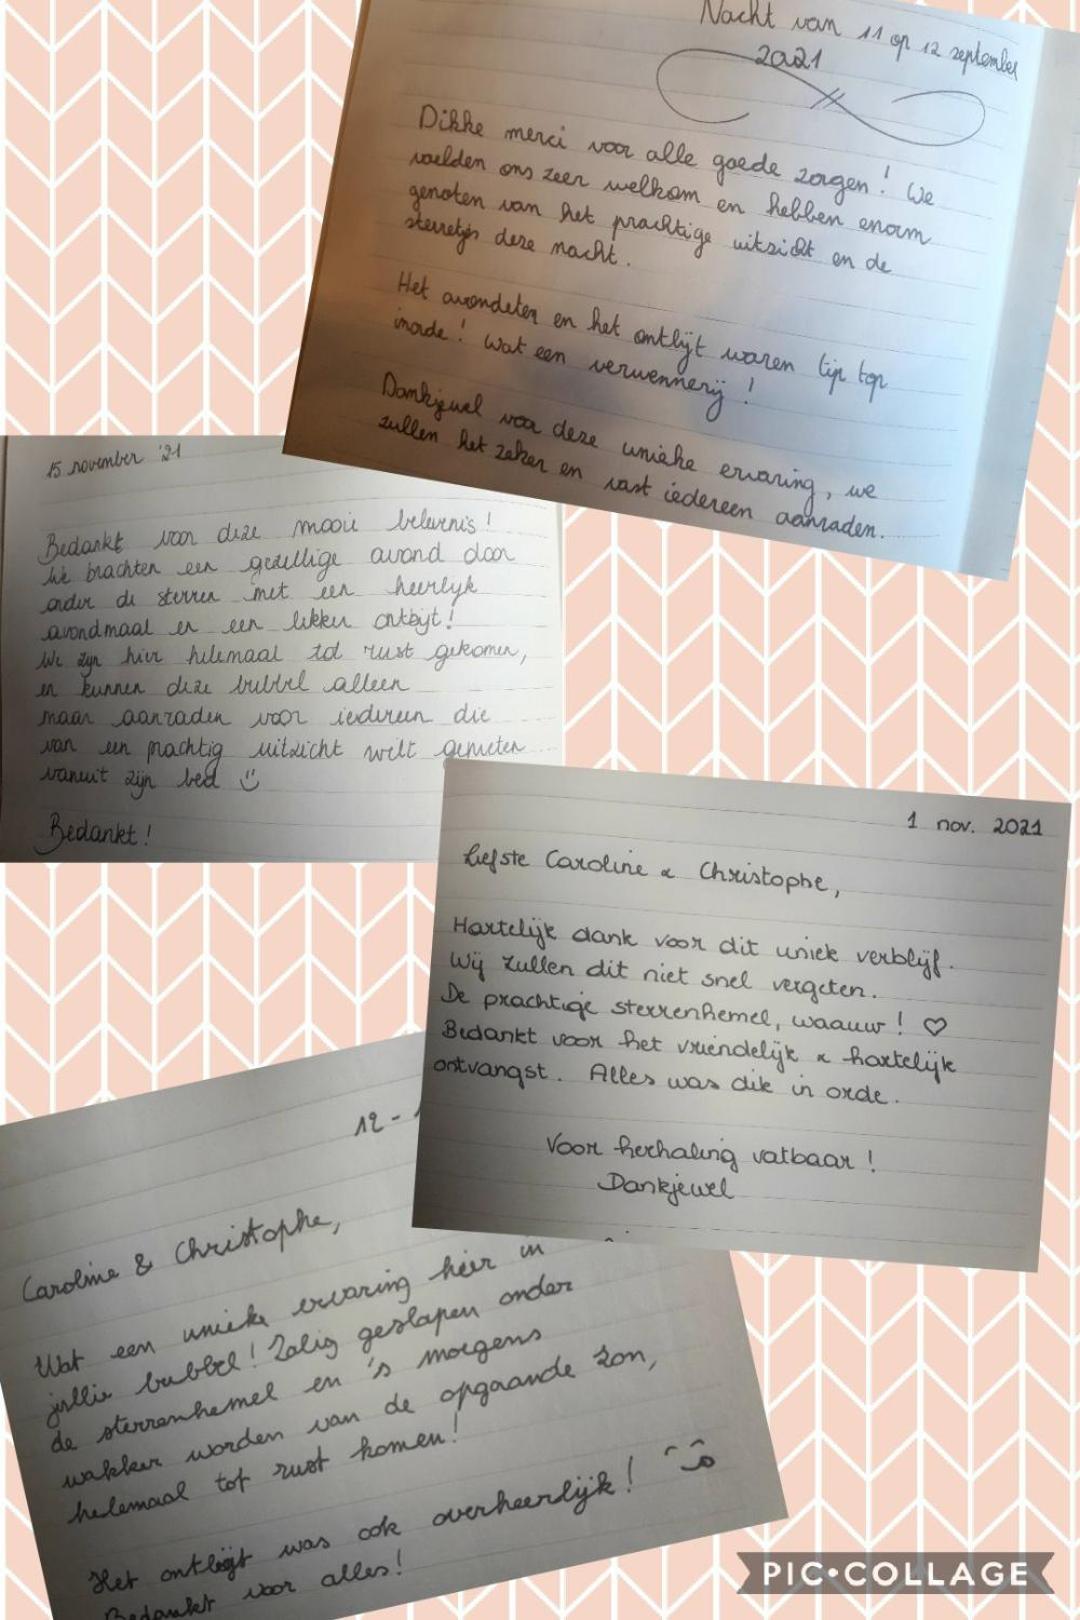 Nacht van 11 op 12 september
2021
Dikke merci voor alle goede zorgen! We
voelden ons zeer welkom en hebben enorm
genoten van het prachtige uitzicht en de
sterretjes deze nacht.
Het avondeten en het ontbijt waren tip top
inorde! Wat een verwennerij!
Dankjewel voor deze unieke ervaring, we
zullen het zeker en vast iedereen aanraden.
15 november '21
Bedankt voor deze mooie belevenis!
We brachten een gezellige avond door
onder de sterren met een heerlijk
avondmaal en een lekker ontbijt!
We zijn hier helemaal tot rust gekomen,
en kunnen deze bubbel alleen
maar aanraden voor iedereen die
van een prachtig uitzicht wilt genieten
vanuit zijn bed
Bedankt!
1 nov. 2021
Liefste Caroline & Christophe,
Hartelijk dank voor dit uniek verblijf.
Wij zullen dit niet snel vergeten.
De prachtige sterrenhemel, waauw! ♡
Bedankt voor het vriendelijk & hartelijk
ontvangst. Alles was dik in orde.
Voor herhaling vatbaar!
Dankjewel
12-
Caroline & Christophe,
Wat een unieke ervaring hier in
jullie bubbel! Zalig geslapen onder
de sterrenhemel en 's morgens
wakker worden van de opgaande zon,
helemaal tot rust komen!
Het ontbijt was ook overheerlijk!
Bedankt voor alles!
PIC•COLLAGE